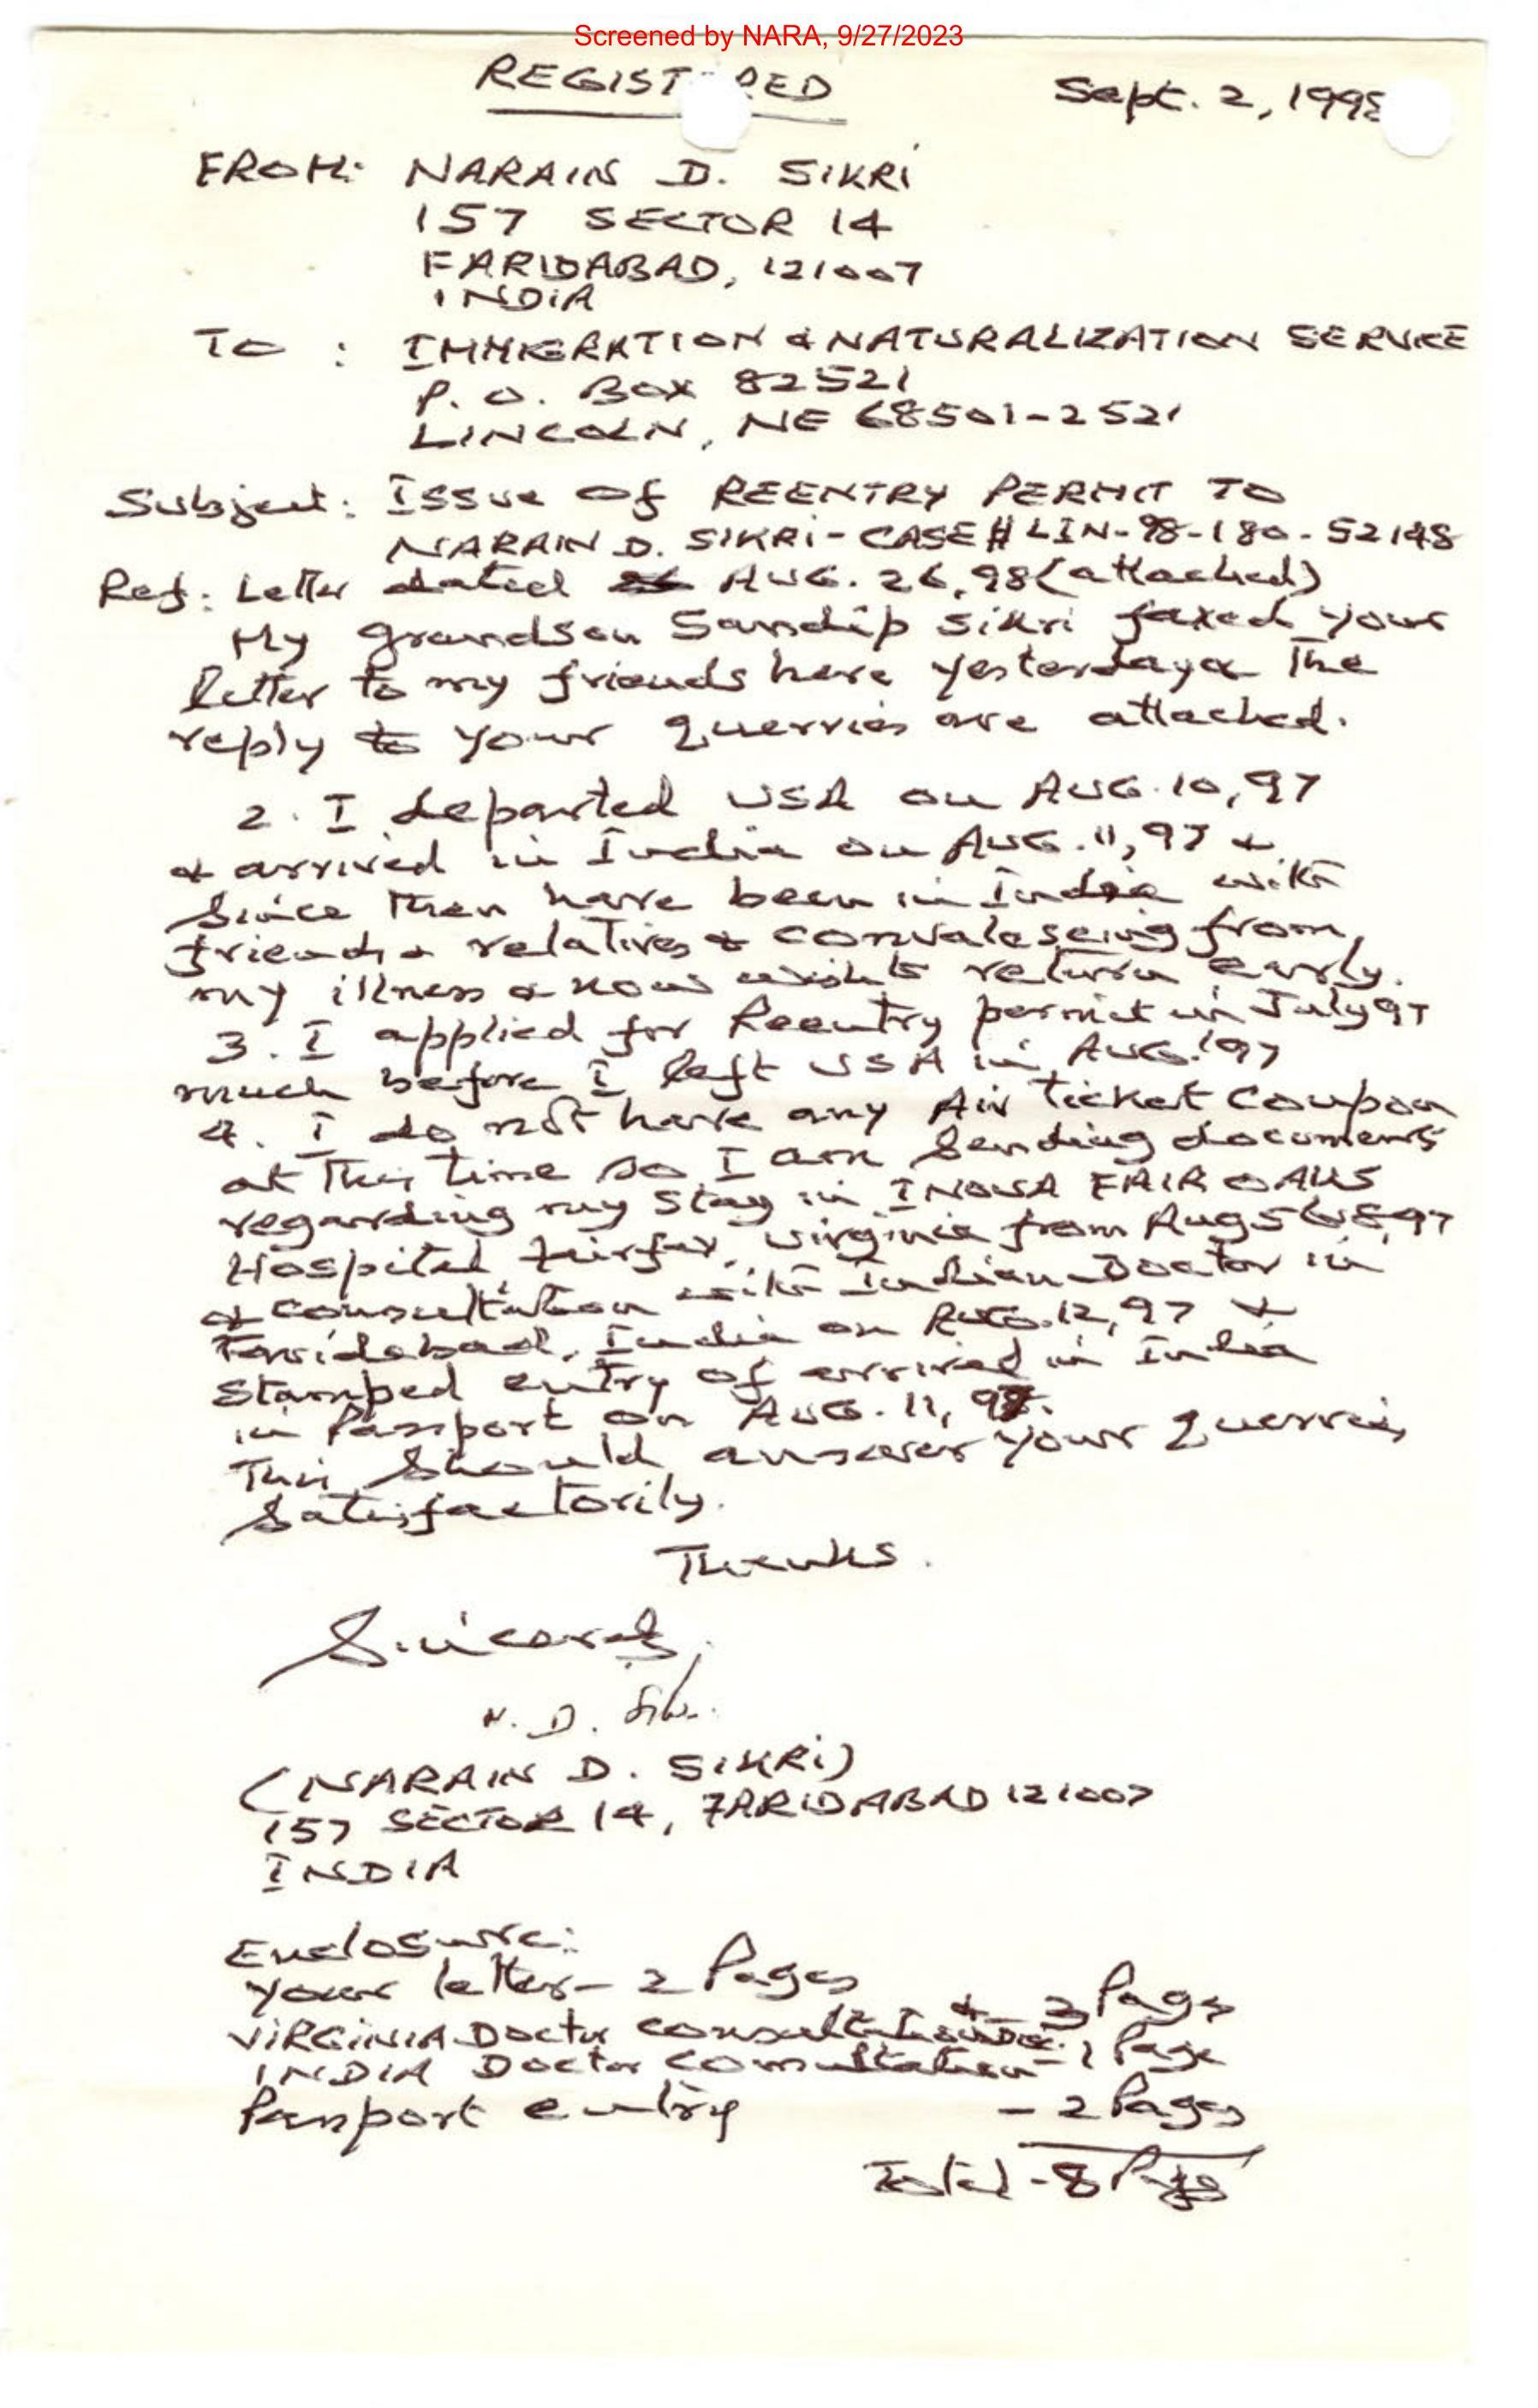 Screened by NARA, 9/27/2023
REGISTERED
Sept. 2, 1998
FROM: NARAIN D. SIKRI
157 SECTOR 14
FARIDABAD, 121007
INDIA
TO : IMMIGRATION & NATURALIZATION SERVICE
P. O. BOX 82521
LINCOLN, NE 68501-2521
Subject: Issue of REENTRY PERMIT TO
NARAIN D. SIKRI - CASE # LIN-98-180-52148
Ref: Letter dated AUG. 26, 98 (attached)
My grandson Sandip Sikri faxed your
letter to my friends here yesterday & The
reply to your querries are attached.
2. I departed USA on AUG. 10, 97
& arrived in India on AUG. 11, 97 &
since then have been in India with
friends & relatives & convalescing from
my illness & now wish to return early.
3. I applied for Reentry permit in July 97
much before I left USA in AUG. '97
4. I do not have any Air ticket Coupon
at this time so I am sending documents
regarding my stay in INOVA FAIR OAKS
Hospital Fairfax, Virginia from Aug 5 to 8, 97
& consultation with Indian Doctor in
Faridabad, India on AUG. 12, 97 &
Stamped entry of arrival in India
in Passport on AUG. 11, 97.
This should answer your querries
satisfactorily.
Thanks.
Sincerely,
N. D. Sikri
(NARAIN D. SIKRI)
157 SECTOR 14, FARIDABAD 121007
INDIA
Enclosure:
Your letter - 2 Pages
VIRGINIA Doctor Consultation - 3 Pages
INDIA Doctor Consultation - 1 Page
Passport entry - 2 Pages
Total - 8 Pages